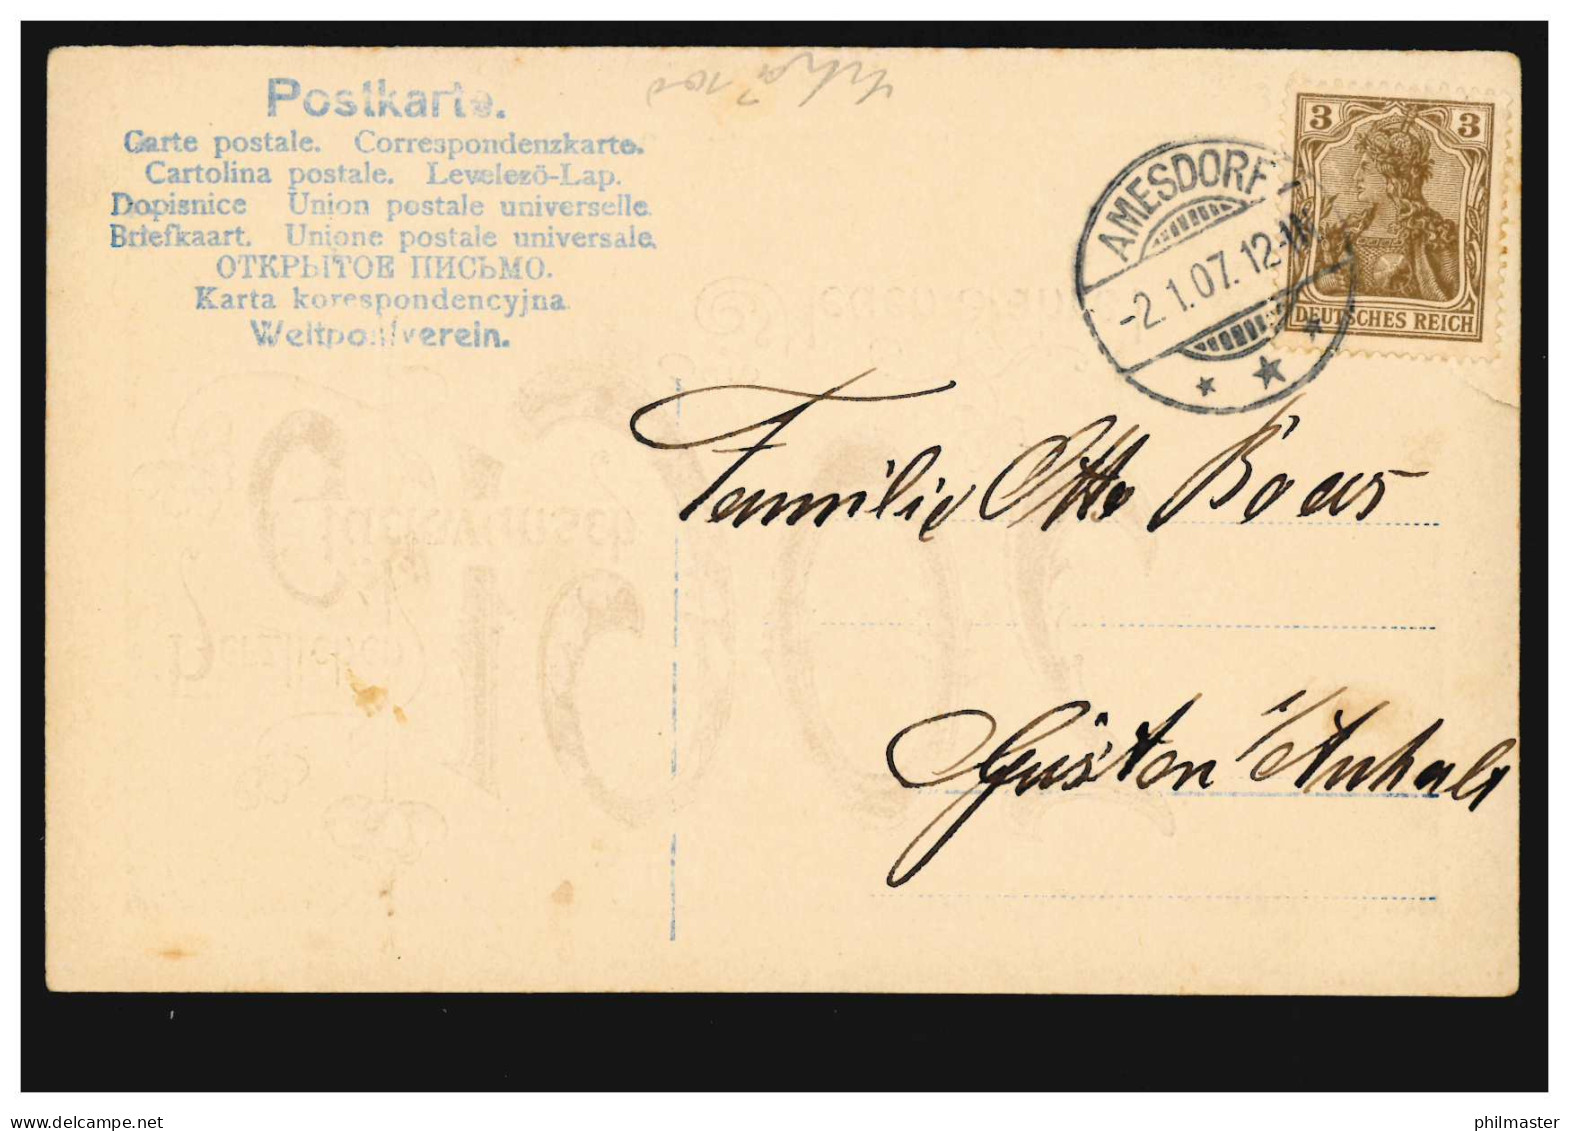 Postkarte.
Carte postale. Correspondenzkarte.
Cartolina postale. Levelező-Lap.
Dopisnice Union postale universelle.
Briefkaart. Unione postale universale.
ОТКРЫТОЕ ПИСЬМО.
Karta korespondencyjna
Weltpostverein.
AMESDORF
-2.1.07. 12-1N
3 3
DEUTSCHES REICH
Familie Otto Boas
Güsten i/Anhalt
www.delcampe.net
philmaster